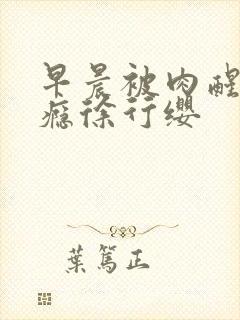 早晨被肉醒
瘾徐行缨
葉篤正